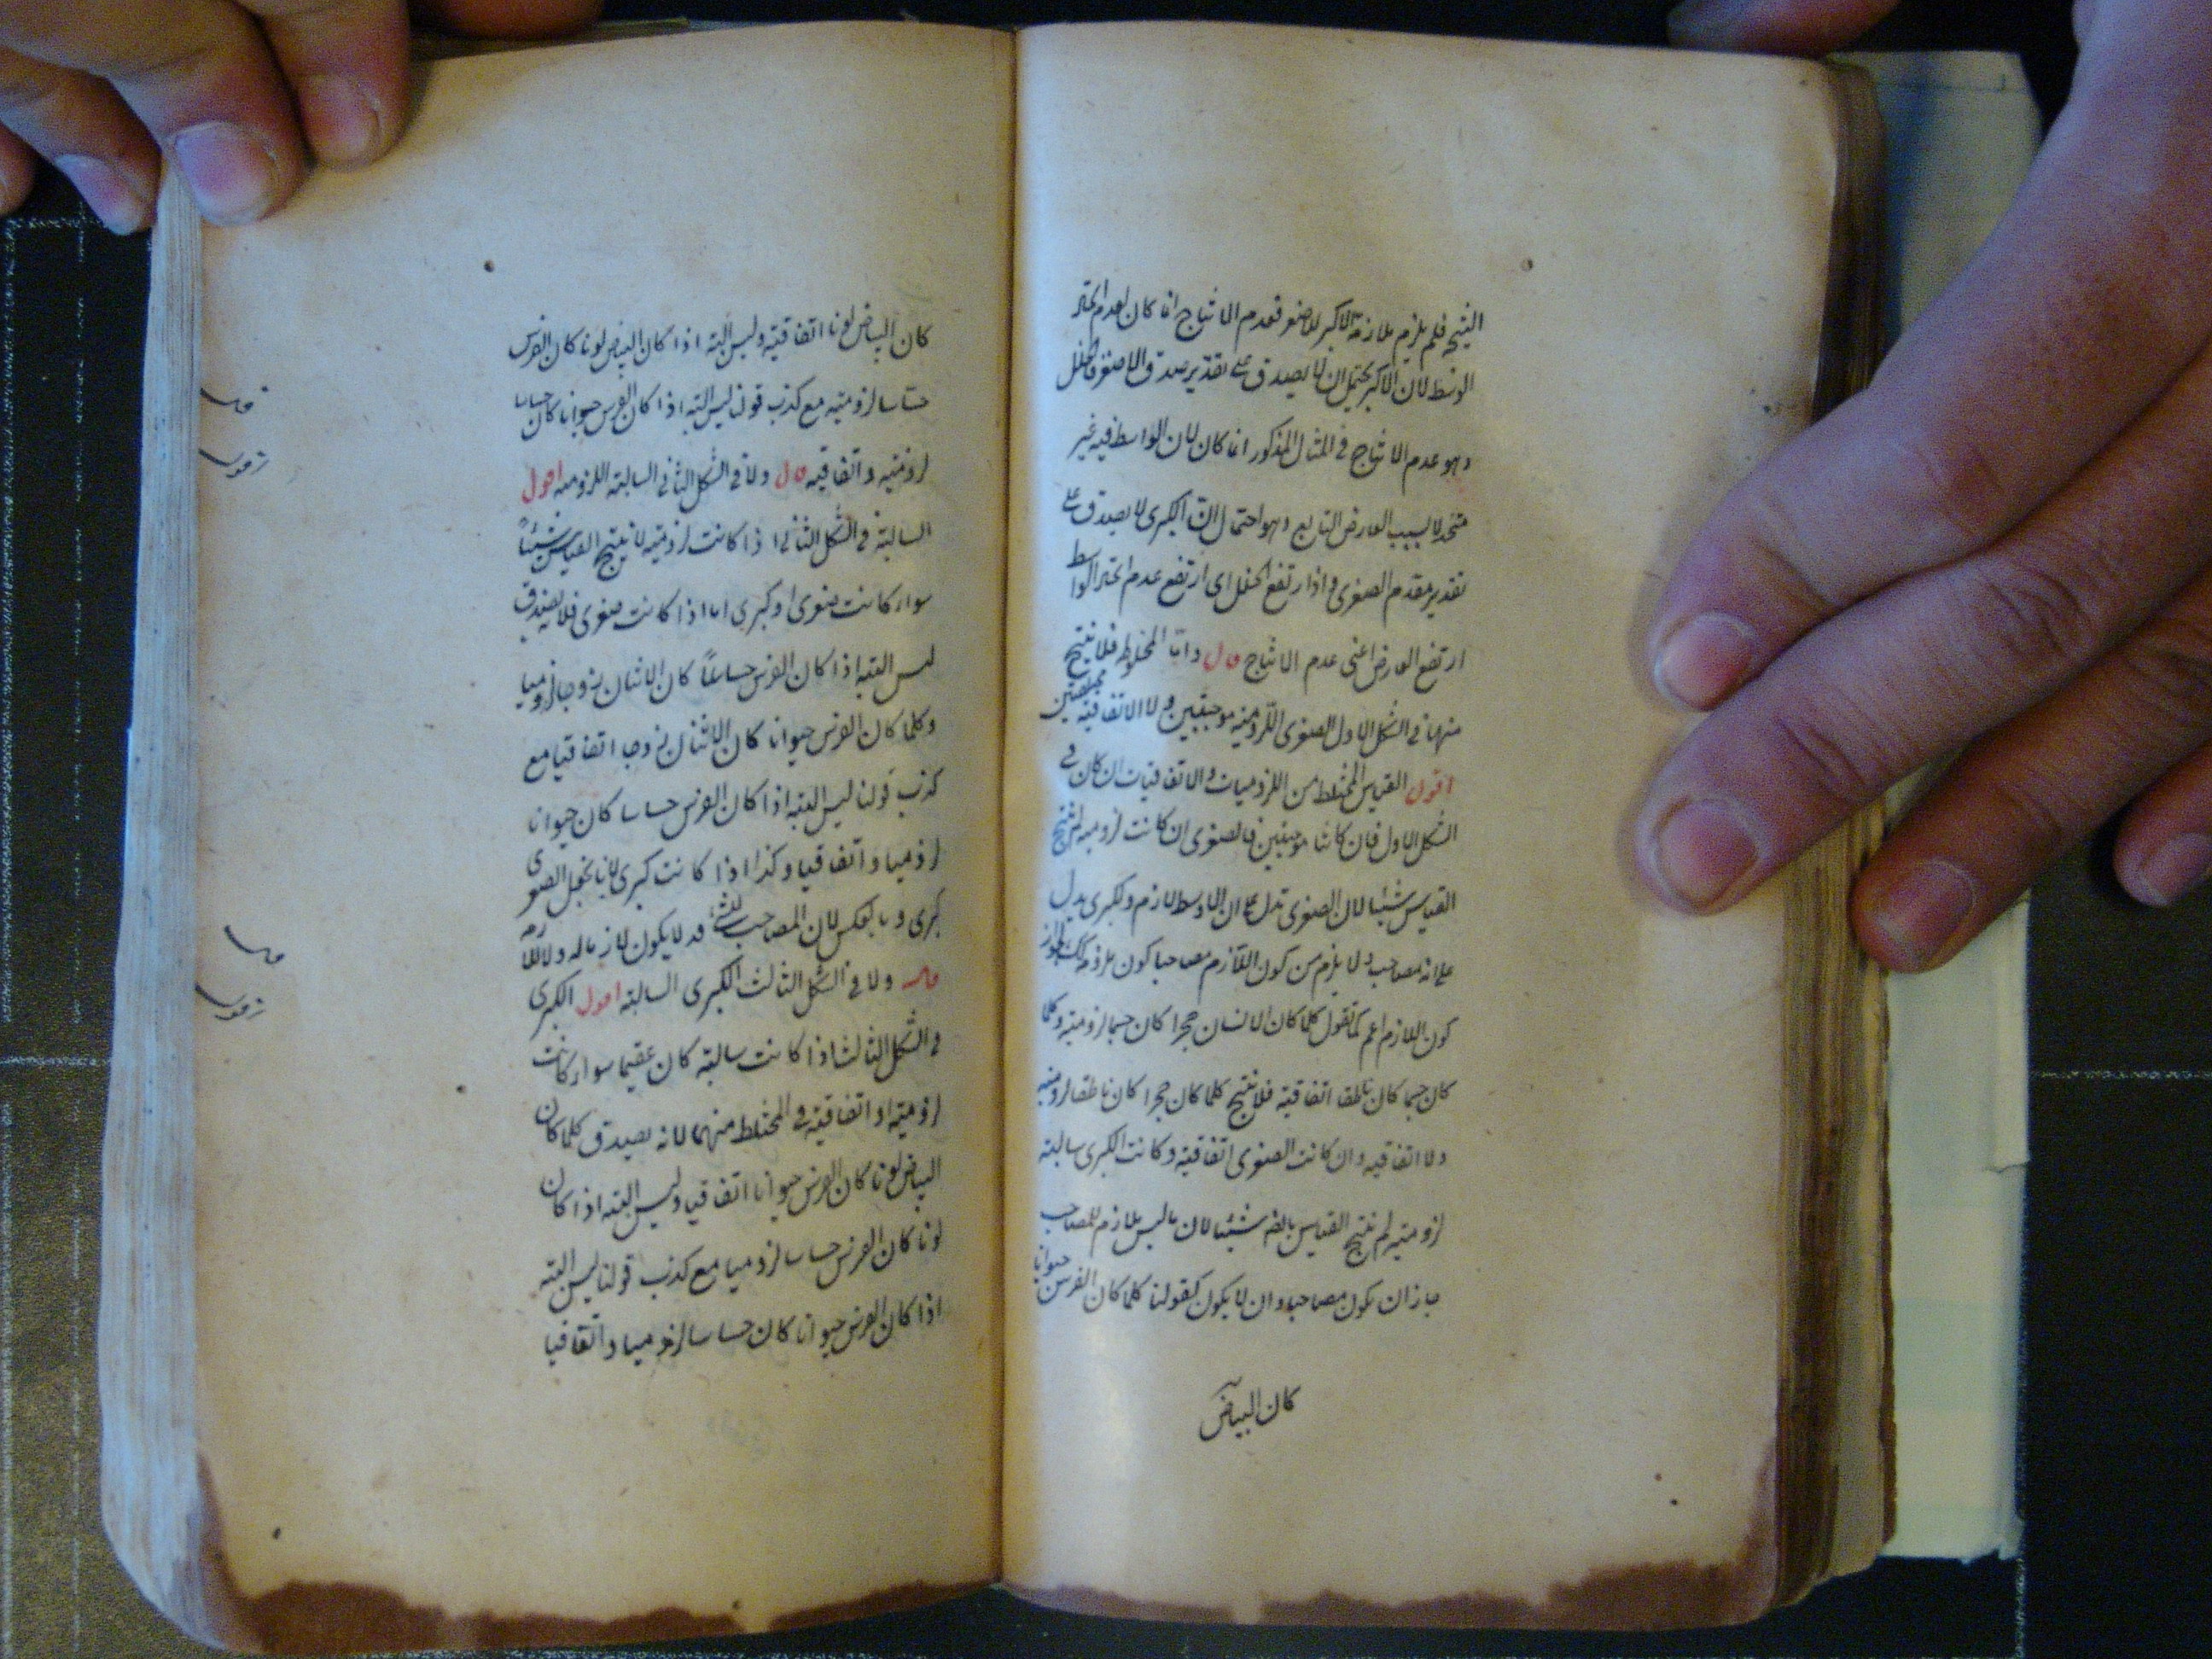 النتيجة فلم يلزم ملازمة الاكبر للاصغر فعدم الانتاج انما كان لعدم اتحاد
الوسط لان الاكبر يحتمل ان لا يصدق على تقدير صدق الاصغر فالخلل
وهو عدم الانتاج في المثال المذكور انما كان لان الواسط فيه غير
متحد لا بسبب العارض التابع وهو احتمال ان الكبرى لا يصدق على
تقدير مقدم الصغرى واذا ارتفع الخلل اى ارتفع عدم اتحاد الواسط
ارتفع العارض اعنى عدم الانتاج قال واما المختلطة فلا ينتج
منها في الشكل الاول الصغرى اللزومية موجبتين ولا الاتفاقية مختلفتين
اقول القياس المختلط من اللزوميات والاتفاقيات ان كان في
الشكل الاول فان كانتا موجبتين فالصغرى ان كانت لزومية لم ينتج
القياس شيئا لان الصغرى تدل على ان الاوسط لازم والكبرى يدل
على انه مصاحب ولا يلزم من كون اللازم مصاحبا كون ملزومه كك لجواز
كون اللازم اعم كما تقول كلما كان الانسان حجرا كان جسما لزومية وكلما
كان جسما كان ناطقا اتفاقية فلا ينتج كلما كان حجرا كان ناطقا لزومية
ولا اتفاقية وان كانت الصغرى اتفاقية وكانت الكبرى سالبة
لزومية لم ينتج القياس بالضم شيئا لان ما ليس بلازم للمصاحب
جاز ان يكون مصاحبا وان لا يكون كقولنا كلما كان الفرس حيوانا
كان البياض
كان البياض لونا اتفاقية وليس البتة اذا كان البياض لونا كان الفرس
حساسا لزومية مع كذب قولنا ليس البتة اذا كان الفرس حيوانا كان حساسا
لزومية واتفاقية قال ولا في الشكل الثاني السالبة اللزومية اقول
السالبة في الشكل الثاني اذا كانت لزومية لا ينتج القياس شيئاً
سواء كانت صغرى او كبرى اما اذا كانت صغرى فلانه يصدق
ليس البتة اذا كان الفرس حساساً كان الاثنان زوجا لزوميا
وكلما كان الفرس حيوانا كان الاثنان زوجا اتفاقيا مع
كذب قولنا ليس البتة اذا كان الفرس حساسا كان حيوانا
لزوميا واتفاقيا وكذا اذا كانت كبرى لانا نجعل الصغرى
كبرى وبالعكس لان المصاحب للشئ قد لا يكون لازما له ولا للازم
قال ولا في الشكل الثالث الكبرى السالبة اقول الكبرى
في الشكل الثالث اذا كانت سالبة كان عقيما سواء كانت
لزومية او اتفاقية في المختلط منهما لانه يصدق كلما كان
البياض لونا كان الفرس حيوانا اتفاقيا وليس البتة اذا كان
لونا كان الفرس حساسا لزوميا مع كذب قولنا ليس البتة
اذا كان الفرس حيوانا كان حساسا لزوميا واتفاقيا